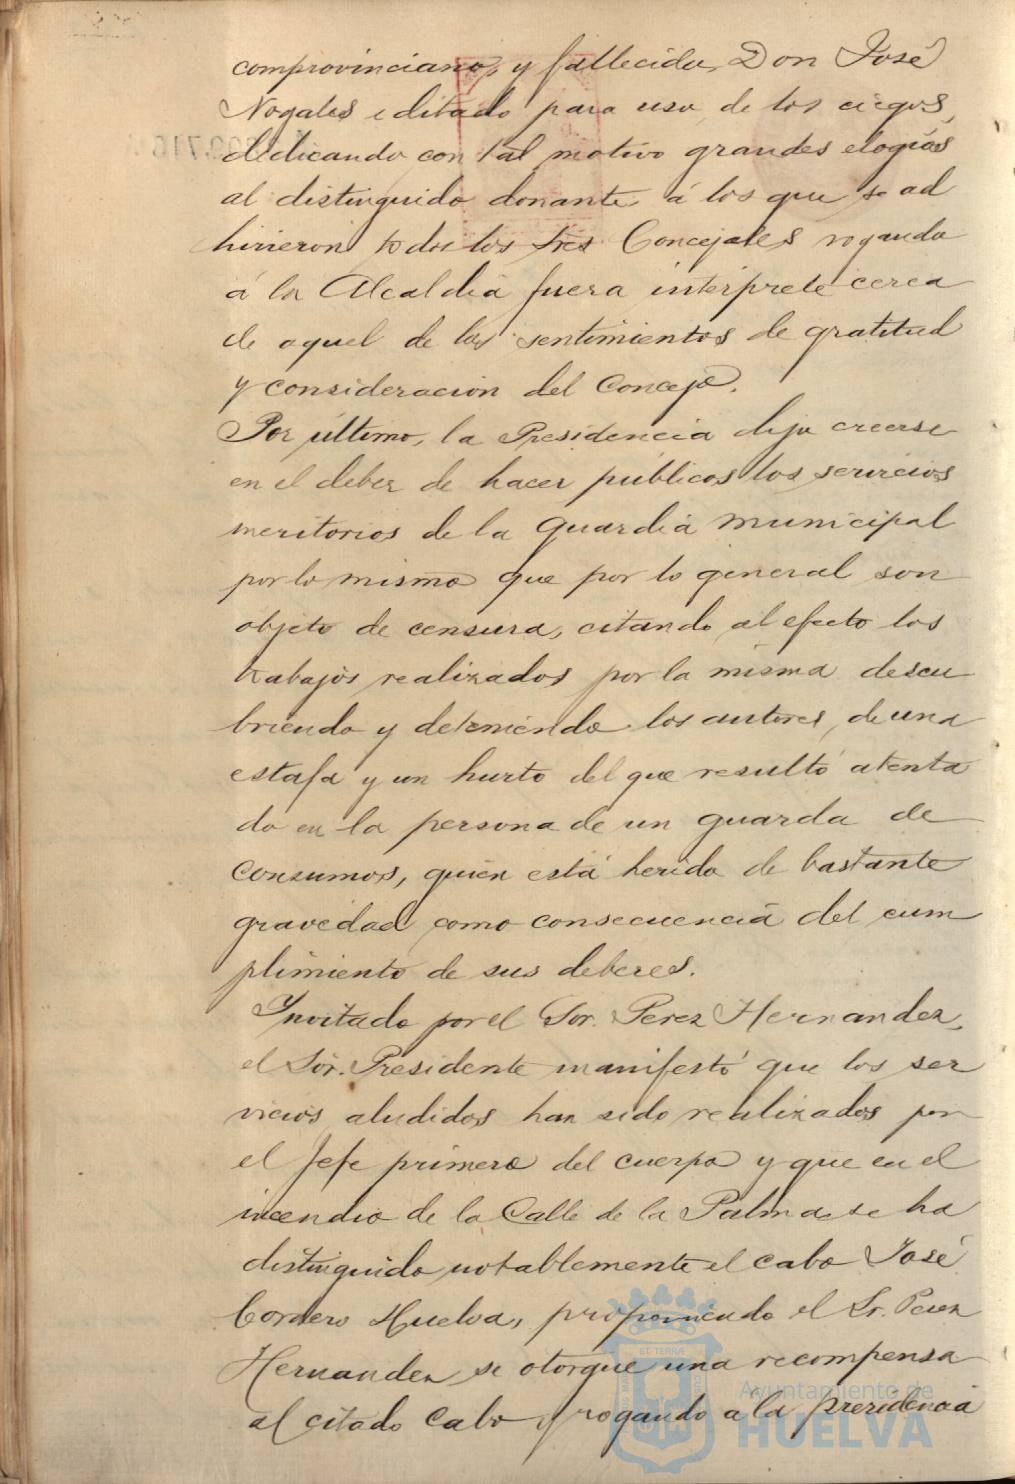 comprovinciano, y fallecido, Don José
Nogales editado para uso de los ciegos,
dedicando con tal motivo grandes elogios
al distinguido donante á los que se ad
hirieron todos los Sres Concejales rogando
á la Alcaldia fuera intérprete cerca
de aquel de los sentimientos de gratitud
y consideracion del Concejo.
Por último, la Presidencia dijo creerse
en el deber de hacer públicos los servicios
meritorios de la Guardia Municipal
por lo mismo que por lo general son
objeto de censura, citando al efecto los
trabajos realizados por la misma descu
briendo y deteniendo los autores, de una
estafa y un hurto del que resultó atenta
do en la persona de un guarda de
Consumos, quien está herido de bastante
gravedad como consecuencia del cum
plimiento de sus deberes.
Invitado por el Sor. Perez Hernandez,
el Sor. Presidente manifestó que los ser
vicios aludidos han sido realizados por
el Jefe primero del cuerpo y que en el
incendio de la Calle de la Palma se ha
distinguido notablemente el cabo José
Cordero Huelva, proponiendo el Sr. Perez
Hernandez se otorgue una recompensa
al citado Cabo y rogando a la presidencia
ET TERRA
Ayuntamiento de
HUELVA